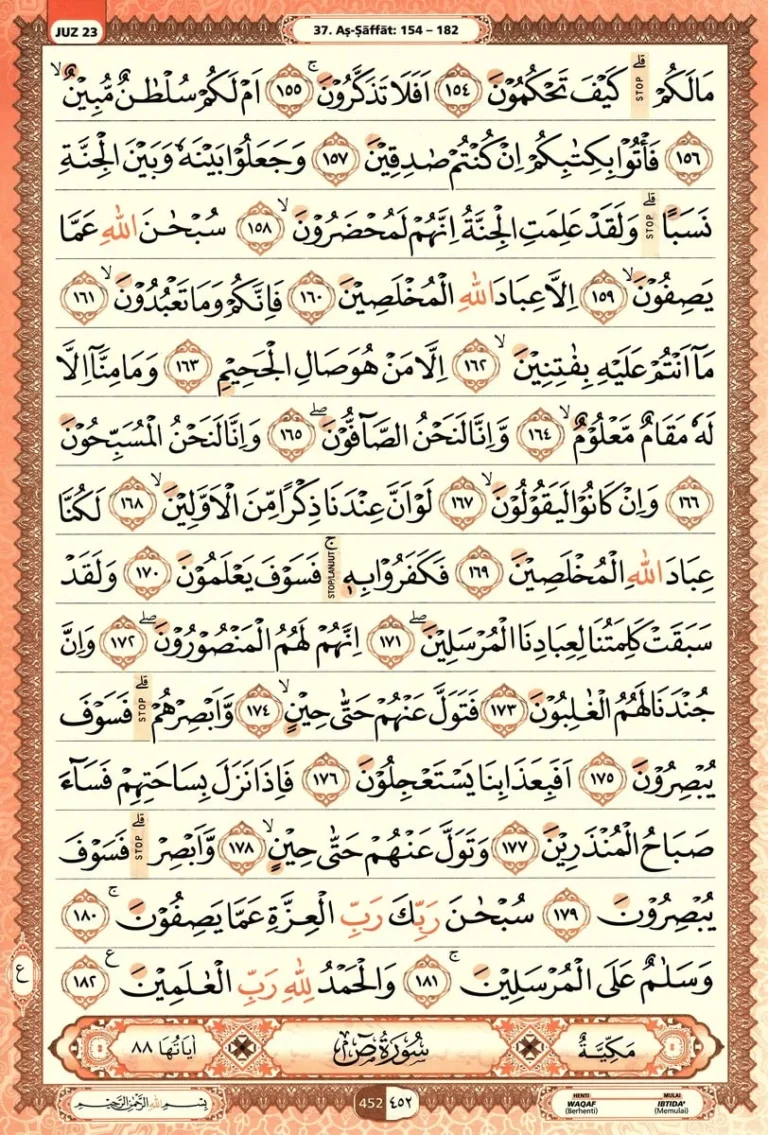 JUZ 23
37. Aṣ-Ṣāffāt: 154 – 182
مَالَكُمْۗ STOP كَيْفَ تَحْكُمُوْنَ ١٥٤ اَفَلَا تَذَكَّرُوْنَۚ ١٥٥ اَمْ لَكُمْ سُلْطٰنٌ مُّبِيْنٌۙ
١٥٦ فَأْتُوْا بِكِتٰبِكُمْ اِنْ كُنْتُمْ صٰدِقِيْنَ ١٥٧ وَجَعَلُوْا بَيْنَهٗ وَبَيْنَ الْجِنَّةِ
نَسَبًاۗ STOP وَلَقَدْ عَلِمَتِ الْجِنَّةُ اِنَّهُمْ لَمُحْضَرُوْنَۙ ١٥٨ سُبْحٰنَ اللّٰهِ عَمَّا
يَصِفُوْنَۙ ١٥٩ اِلَّا عِبَادَ اللّٰهِ الْمُخْلَصِيْنَ ١٦٠ فَاِنَّكُمْ وَمَا تَعْبُدُوْنَۙ ١٦١
مَآ اَنْتُمْ عَلَيْهِ بِفٰتِنِيْنَۙ ١٦٢ اِلَّا مَنْ هُوَ صَالِ الْجَحِيْمِ ١٦٣ وَمَا مِنَّآ اِلَّا
لَهٗ مَقَامٌ مَّعْلُوْمٌۙ ١٦٤ وَّاِنَّا لَنَحْنُ الصَّاۤفُّوْنَۖ ١٦٥ وَاِنَّا لَنَحْنُ الْمُسَبِّحُوْنَ
١٦٦ وَاِنْ كَانُوْا لَيَقُوْلُوْنَۙ ١٦٧ لَوْ اَنَّ عِنْدَنَا ذِكْرًا مِّنَ الْاَوَّلِيْنَۙ ١٦٨ لَكُنَّا
عِبَادَ اللّٰهِ الْمُخْلَصِيْنَ ١٦٩ فَكَفَرُوْا بِهٖۚ STOP/LANJUT فَسَوْفَ يَعْلَمُوْنَ ١٧٠ وَلَقَدْ
سَبَقَتْ كَلِمَتُنَا لِعِبَادِنَا الْمُرْسَلِيْنَۖ ١٧١ اِنَّهُمْ لَهُمُ الْمَنْصُوْرُوْنَۖ ١٧٢ وَاِنَّ
جُنْدَنَا لَهُمُ الْغٰلِبُوْنَ ١٧٣ فَتَوَلَّ عَنْهُمْ حَتّٰى حِيْنٍۙ ١٧٤ وَّاَبْصِرْهُمْۗ STOP فَسَوْفَ
يُبْصِرُوْنَ ١٧٥ اَفَبِعَذَابِنَا يَسْتَعْجِلُوْنَ ١٧٦ فَاِذَا نَزَلَ بِسَاحَتِهِمْ فَسَاۤءَ
صَبَاحُ الْمُنْذَرِيْنَ ١٧٧ وَتَوَلَّ عَنْهُمْ حَتّٰى حِيْنٍۙ ١٧٨ وَّاَبْصِرْۗ STOP فَسَوْفَ
يُبْصِرُوْنَ ١٧٩ سُبْحٰنَ رَبِّكَ رَبِّ الْعِزَّةِ عَمَّا يَصِفُوْنَۚ ١٨٠
وَسَلٰمٌ عَلَى الْمُرْسَلِيْنَۚ ١٨١ وَالْحَمْدُ لِلّٰهِ رَبِّ الْعٰلَمِيْنَ ع ١٨٢
ع
مَكِّيَّةٌ سُوْرَةُ صٓ اٰيَاتُهَا ٨٨
بِسْمِ اللّٰهِ الرَّحْمٰنِ الرَّحِيْمِ
452 ٤٥٢
HENTI WAQAF (Berhenti)
MULAI IBTIDA' (Memulai)